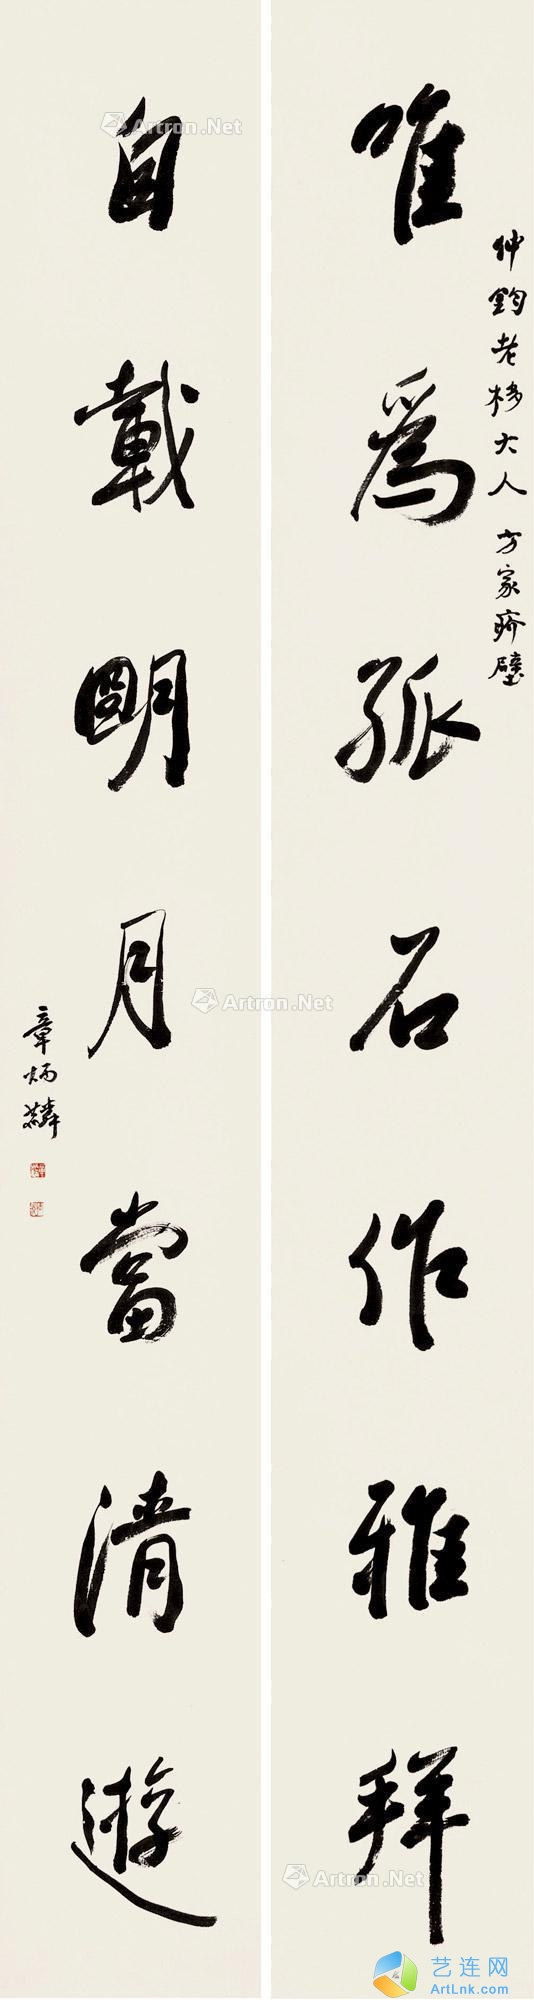 唯爲孤石作雅拜
仲鈞老棣大人 方家疥壁
自載明月當清遊
章炳麟
Artron.Net
Artron.Net
Artron.Net
Artron.Net
艺连网
ArtLnk.com